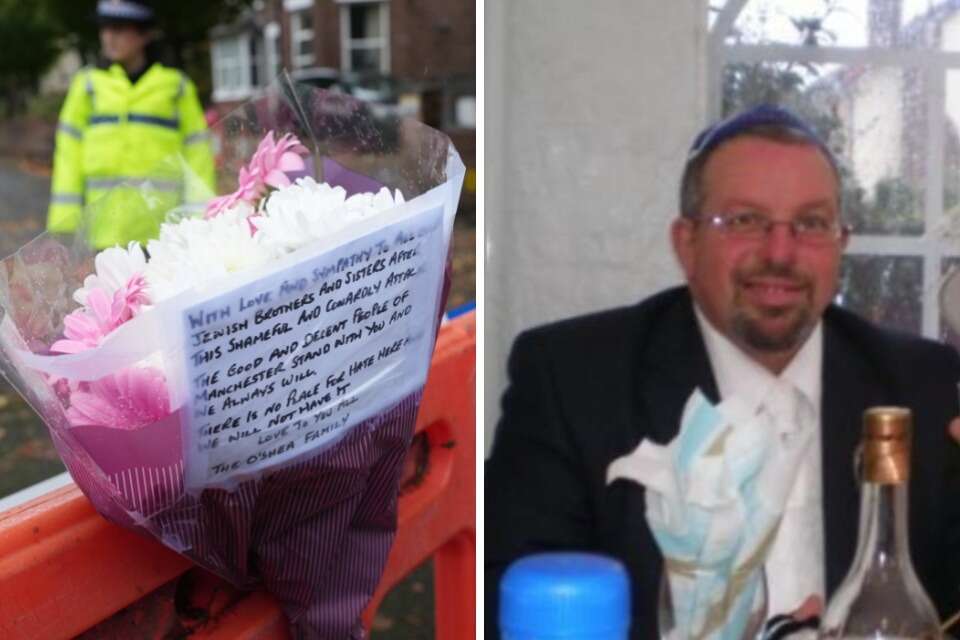 WITH LOVE AND SYMPATHY TO ALL OUR
JEWISH BROTHERS AND SISTERS AFTER
THIS SHAMEFUL AND COWARDLY ATTACK
THE GOOD AND DECENT PEOPLE OF
MANCHESTER STAND WITH YOU AND
WE ALWAYS WILL
THERE IS NO PLACE FOR HATE HERE &
WE WILL NOT HAVE IT
LOVE TO YOU ALL
THE O'SHEA FAMILY